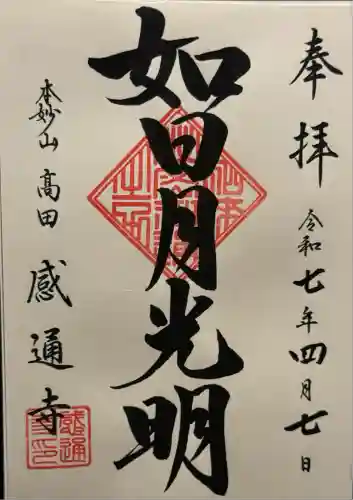 奉拝
令和七年四月七日
如日月光明
本妙山
高田
感通寺
感通
寺印